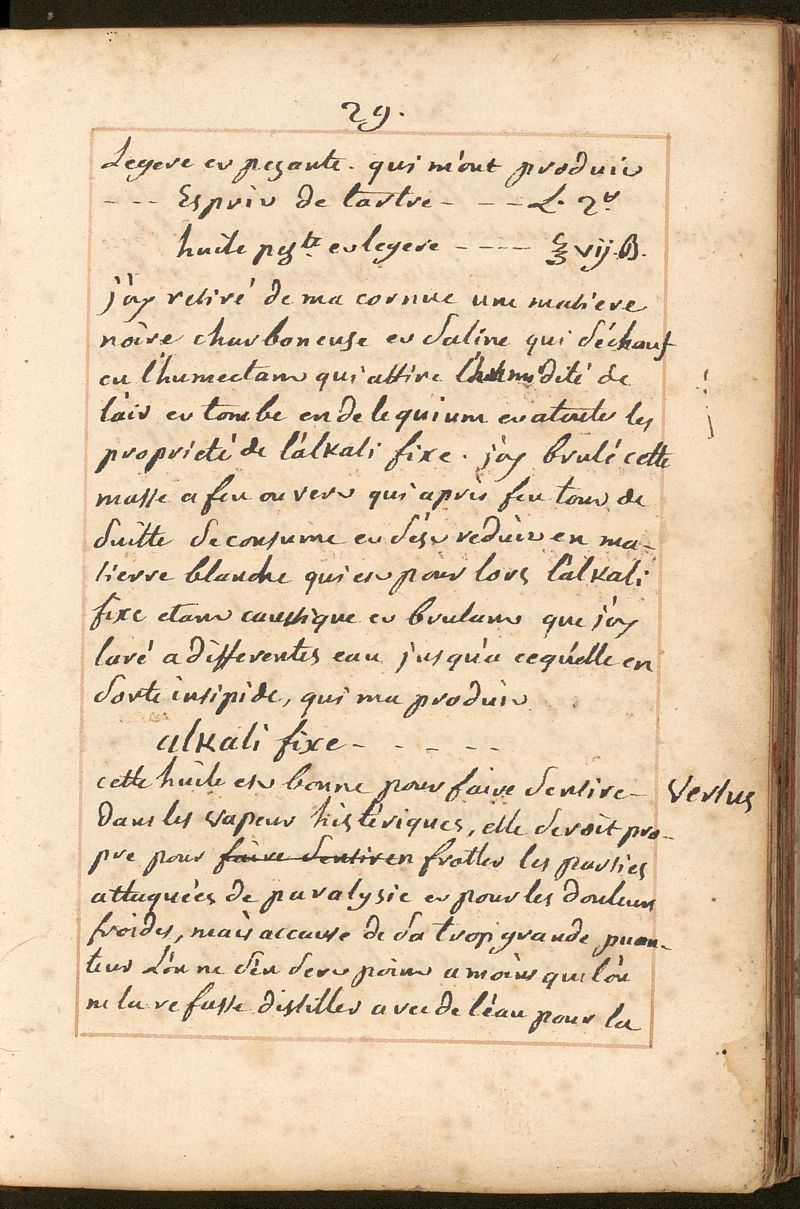 29.
Legere et pesante. qui m'ont produit
--- Esprit de tartre - - - L. 2
huile pes.te et legere ---- ℥ vij.ß.
j'ay retiré de ma cornue une matiere
noire charboneuse et saline qui s'échauf
en l'humectant qui attire l'humidité de
l'air et tombe en deliquium et a toutes les
proprieté de l'alkali fixe. j'ay brulé cette
masse a feu ouvert qui aprés feu tout de
suitte se consume et s'est reduit en ma-
tierre blanche qui est pour lors l'alkali
fixe etant caustique et brulant que j'ay
lavé a differentes eau jusqu'a cequ'elle en
sorte insipide, qui ma produit
alkali fixe - - - - -
cette huile est bonne pour faire sentire-
Vertus
Dans les vapeur histériques, elle seroit pro-
pre pour faire sentir en frotter les parties
attaquées de paralysie et pour les douleurs
froides, mais accause de sa trop grande puan-
teur L'on ne s'en sert point a moins que l'on
ne la refasse distiller avec de l'eau pour la